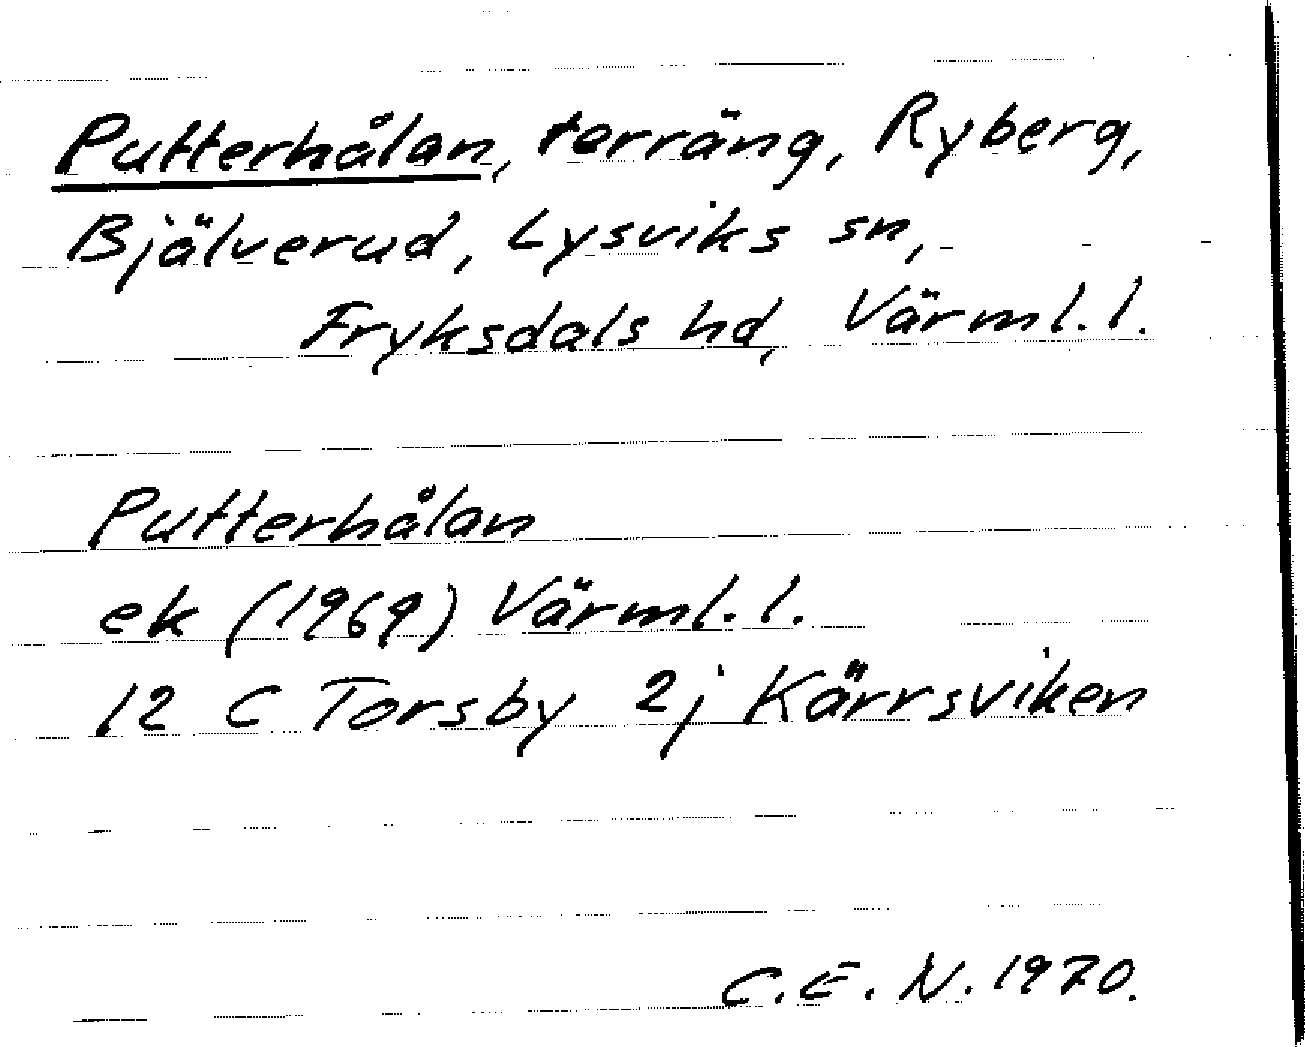 Putterhålan, terräng, Ryberg,
Bjälverud, Lysviks sn,
Fryksdals hd, Värml. l.
Putterhålan
ek (1969) Värml. l.
12 C Torsby 2j Kärrsviken
C. E. N. 1970.